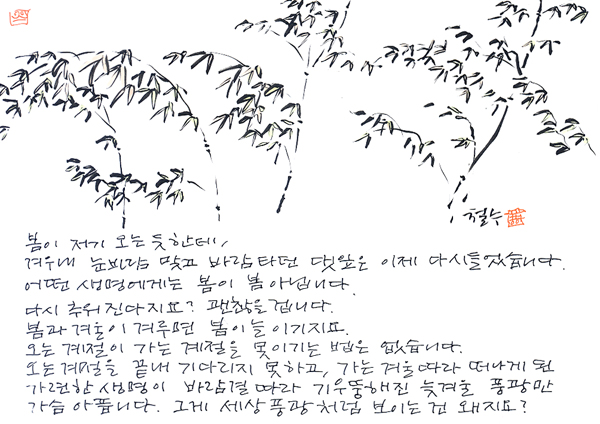 철수
봄이 저기 오는 듯한데,
겨우내 눈바람 맞고 바람타던 댓잎은 이제 다 시들었습니다.
어떤 생명에게는 봄이 봄 아닙니다.
다시 추워진다지요? 괜찮을 겁니다.
봄과 겨울이 겨루면 봄이 늘 이기지요.
오는 계절이 가는 계절을 못이기는 법은 없습니다.
오는 계절을 끝내 기다리지 못하고, 가는 겨울따라 떠나게 된
가련한 생명이 바람결 따라 기우뚱해진 늦겨울 풍광만
가슴 아픕니다. 그게 세상풍광처럼 보이는 건 왜지요?